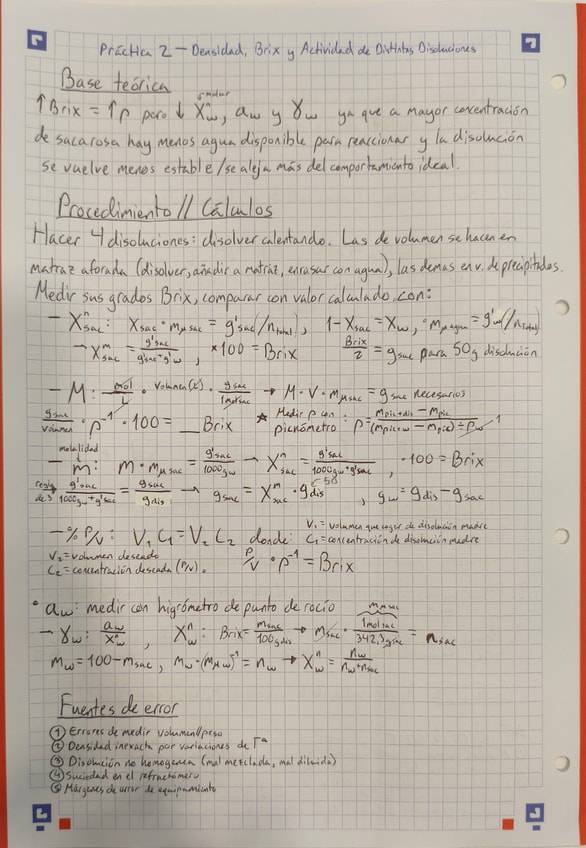 Práctica 2 – Densidad, Brix y Actividad de Distintas Disoluciones
Base teórica
↑Brix = ↑ρ pero ↓ Xⁿw, aw y γw ya que a mayor concentración
molar
de sacarosa hay menos agua disponible para reaccionar y la disolución
se vuelve menos estable/se aleja más del comportamiento ideal.
Procedimiento // Cálculos
Hacer 4 disoluciones: disolver calentando. Las de volumen se hacen en
matraz aforada (disolver, añadir a matraz, enrasar con agua), las demas en v. de precipitados.
Medir sus grados Brix, comparar con valor calculado con:
– Xⁿsac: Xsac · mμsac = g'sac(/ntotal), 1-Xsac = Xw, · mμagua = g'w(/ntotal)
→ Xᵐsac = g'sac/(g'sac+g'w), ×100 = Brix Brix/2 = gsac para 50g disolución
– M: mol/L · volumen(L) · gsac/1molsac → M · V · mμsac = gsac necesarios
gsac/volumen · ρ⁻¹ · 100 = __ Brix * Medir ρ con picnómetro: ρ = (mpic+dis – mpic)/((mpic+w – mpic) ÷ ρw) 1
molalidad
– m: m · mμsac = g'sac/1000gw → Xᵐsac = g'sac/(1000gw+g'sac), · 100 = Brix
regla de 3 g'sac/(1000gw+g'sac) = gsac/gdis → gsac = Xᵐsac · gdis 50, gw = gdis – gsac
– % P/V: V₁C₁ = V₂C₂ donde: V₁ = volumen que coger de disolución madre
V₂ = volumen deseado C₁ = concentración de disolución madre
C₂ = concentración deseada (P/V). P/V · ρ⁻¹ = Brix
• aw: medir con higrómetro de punto de rocío
mμsac
– γw: aw/Xⁿw, Xⁿw: Brix = msac/100gdis → msac · 1molsac/342,3gsac = nsac
mw = 100 – msac, mw · (mμw)⁻¹ = nw → Xⁿw = nw/(nw+nsac)
Fuentes de error
① Errores de medir volumen//peso
② Densidad inexacta por variaciones de Tª
③ Disolución no homogenea (mal mezclada, mal diluida)
④ Suciedad en el refractómero
⑤ Márgenes de error de equipamiento